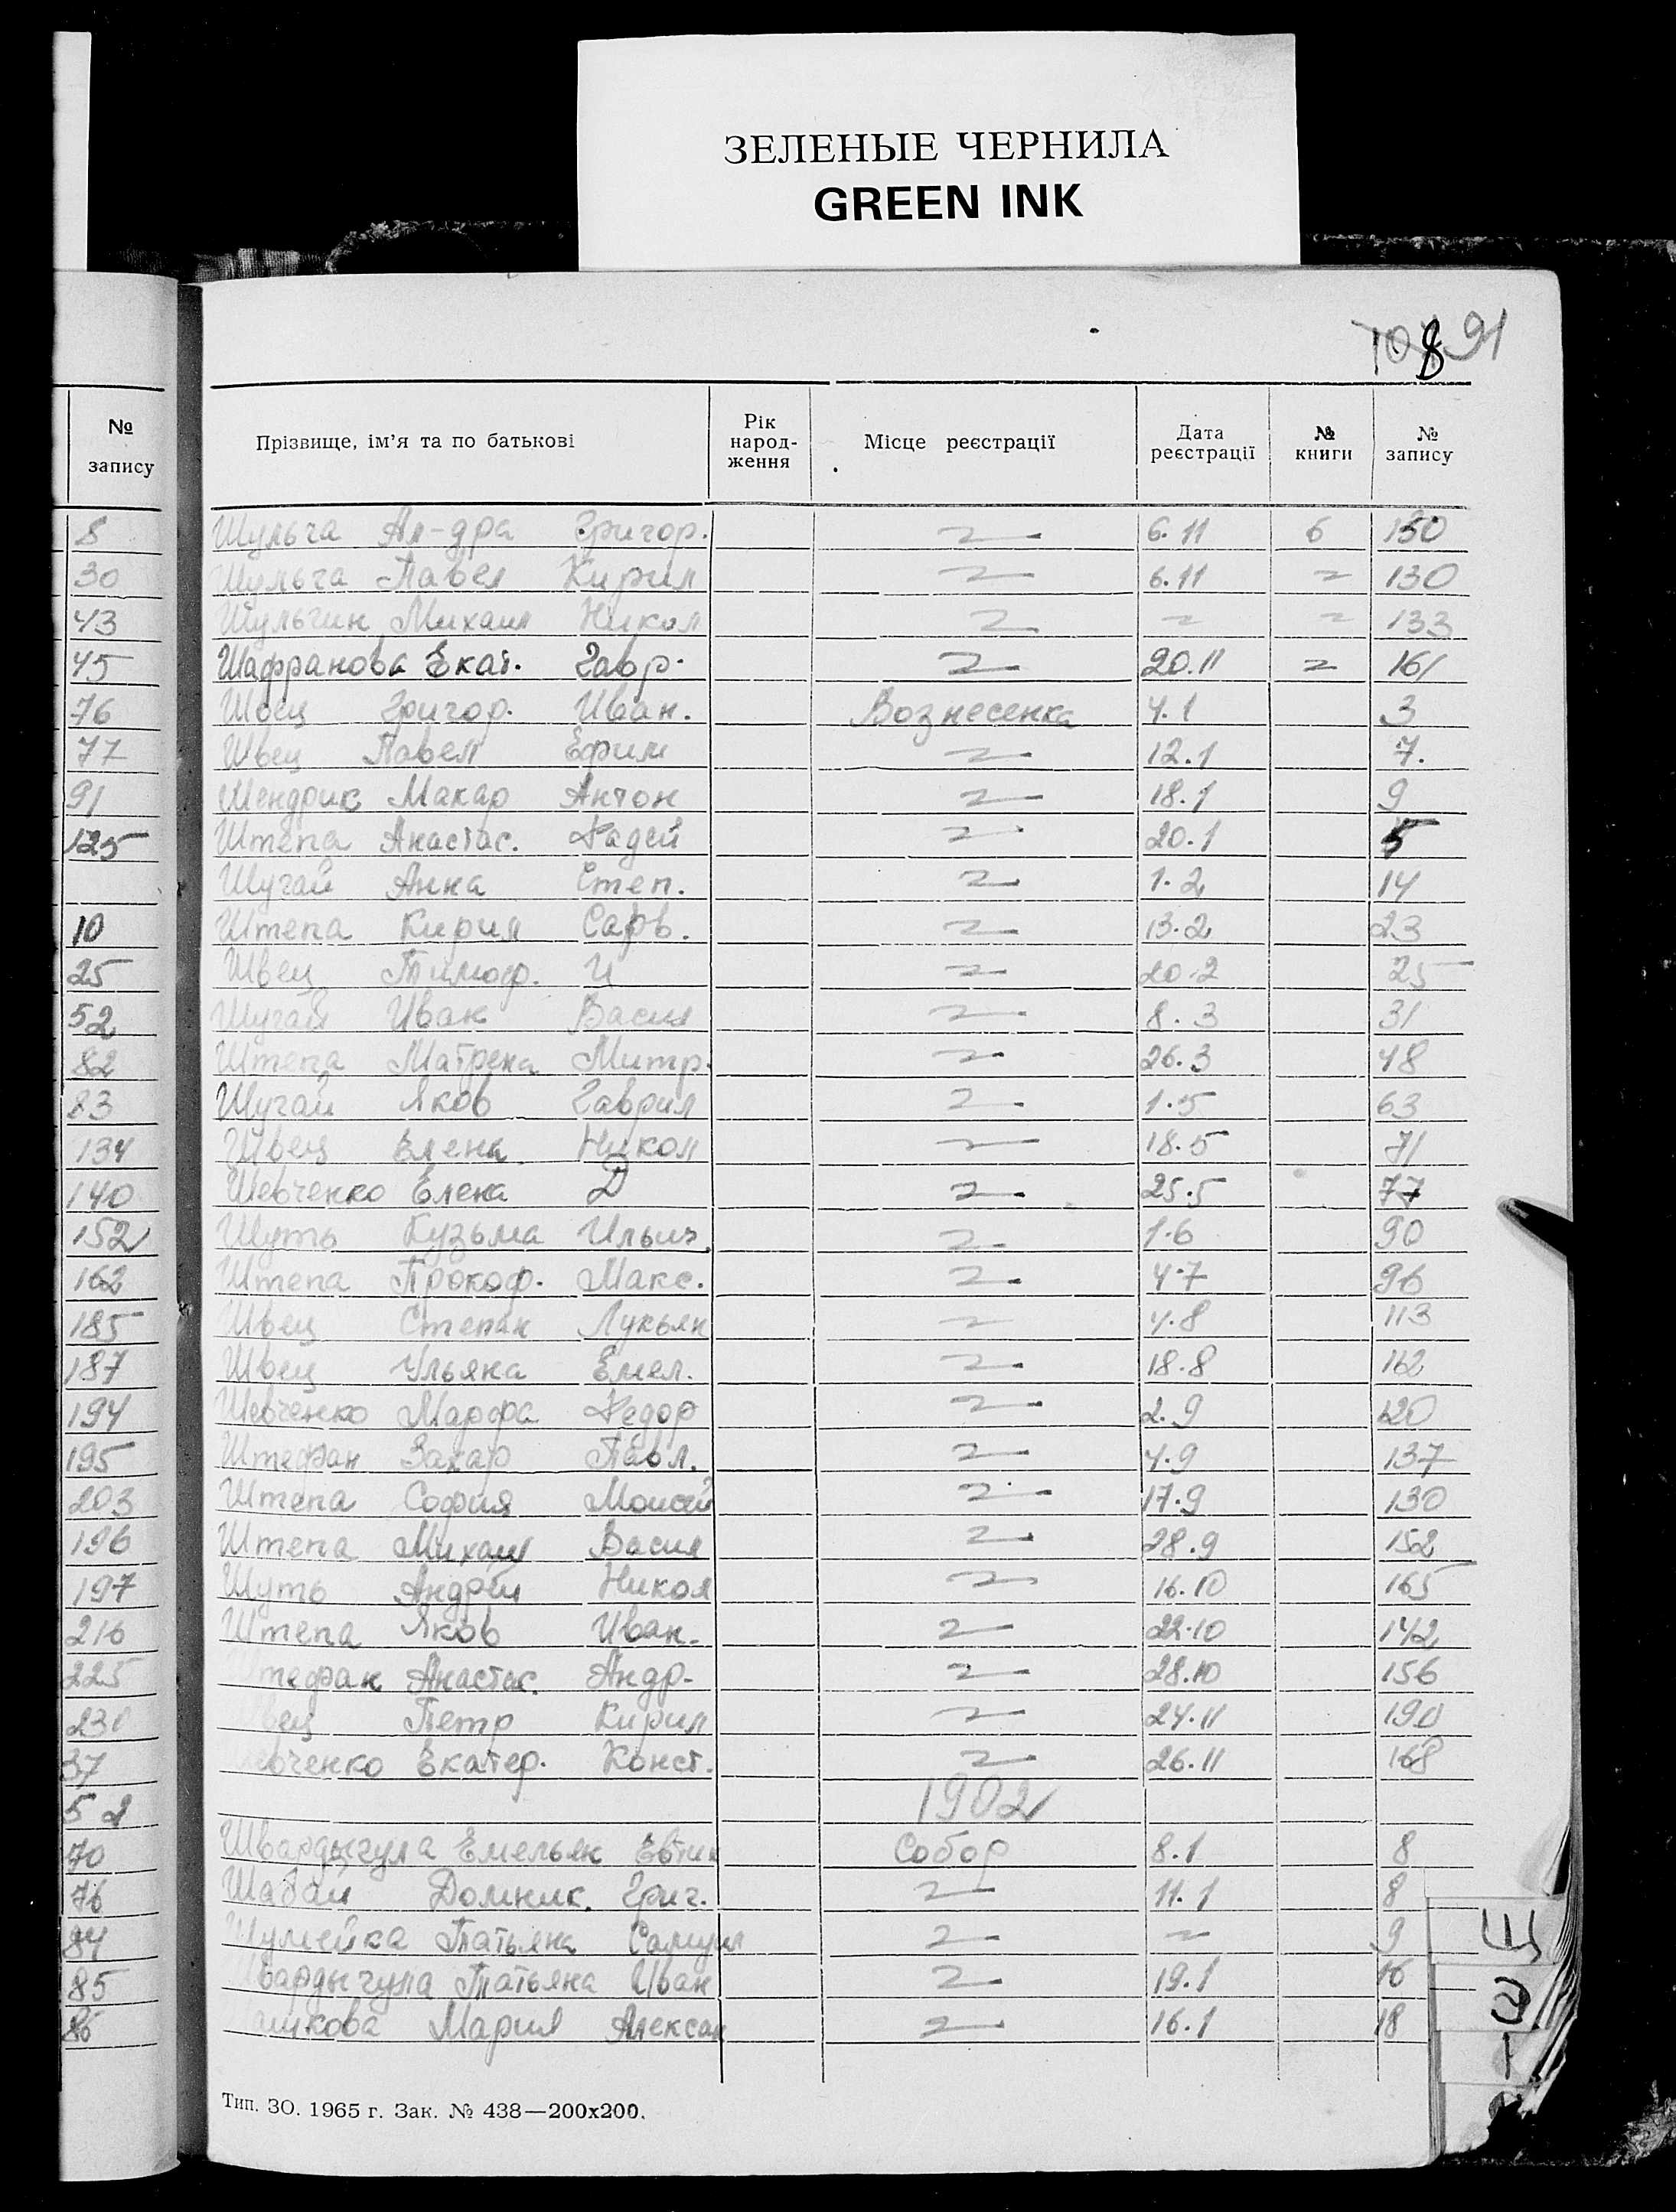 ЗЕЛЕНЫЕ ЧЕРНИЛА
GREEN INK
8 91
№ запису
8
30
43
45
76
77
91
125
10
25
52
82
83
134
140
152
162
185
187
194
195
203
196
197
216
225
230
37
52
70
76
84
85
86
Прізвище, ім'я та по батькові Рік народ-ження Місце реєстрації Дата реєстрації № книги № запису
Шульга Ал-дра Григор. 〃 6.11 6 130
Шульга Павел Кирил 〃 6.11 〃 130
Шульгин Михаил Никол 〃 〃 〃 133
Шафранова Екат. Гавр. 〃 20.11 〃 161
Швец Григор. Иван. Вознесенка 4.1 3
Швец Павел Ефим 〃 12.1 7.
Шендрик Макар Антон 〃 18.1 9
Штепа Анастас. Фадей 〃 20.1 5
Шугай Анна Степ. 〃 1.2 14
Штепа Кирил Сафв. 〃 13.2 23
Швец Тимоф. И 〃 20.2 25
Шугай Иван Васил 〃 8.3 31
Штепа Матрена Митр. 〃 26.3 48
Шугай Яков Гаврил 〃 1.5 63
Швец Елена Никол 〃 18.5 71
Шевченко Елена Д 〃 25.5 77
Шуть Кузьма Ильич. 〃 1.6 90
Штепа Прокоф. Макс. 〃 4.7 96
Швец Степан Лукьян 〃 4.8 113
Швец Ульяна Емел. 〃 18.8 162
Шевченко Марфа Федор 〃 2.9 120
Штефан Захар Павл. 〃 4.9 137
Штепа София Моисей 〃 17.9 130
Штепа Михаил Васил 〃 28.9 152
Шуть Андрей Никол 〃 16.10 165
Штепа Яков Иван. 〃 22.10 142
Штефан Анастас. Андр. 〃 28.10 156
Швец Петр Кирил 〃 24.11 190
Шевченко Екатер. Конст. 〃 26.11 168
1902
Швардыгула Емельян Евтих Собор 8.1 8
Шабай Домник. Григ. 〃 11.1 8
Шумейка Татьяна Самуил 〃 〃 9
Швардыгула Татьяна Иван 〃 19.1 16
Мария Алексан 〃 16.1 18
Тип. ЗО. 1965 г. Зак. № 438—200х200.